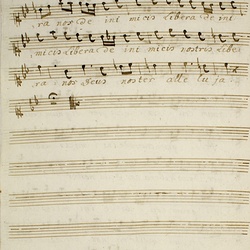 ra nos de int micis libera de int
micis libera de int micis nostris liber
ra nos Deus noster alle lu ja